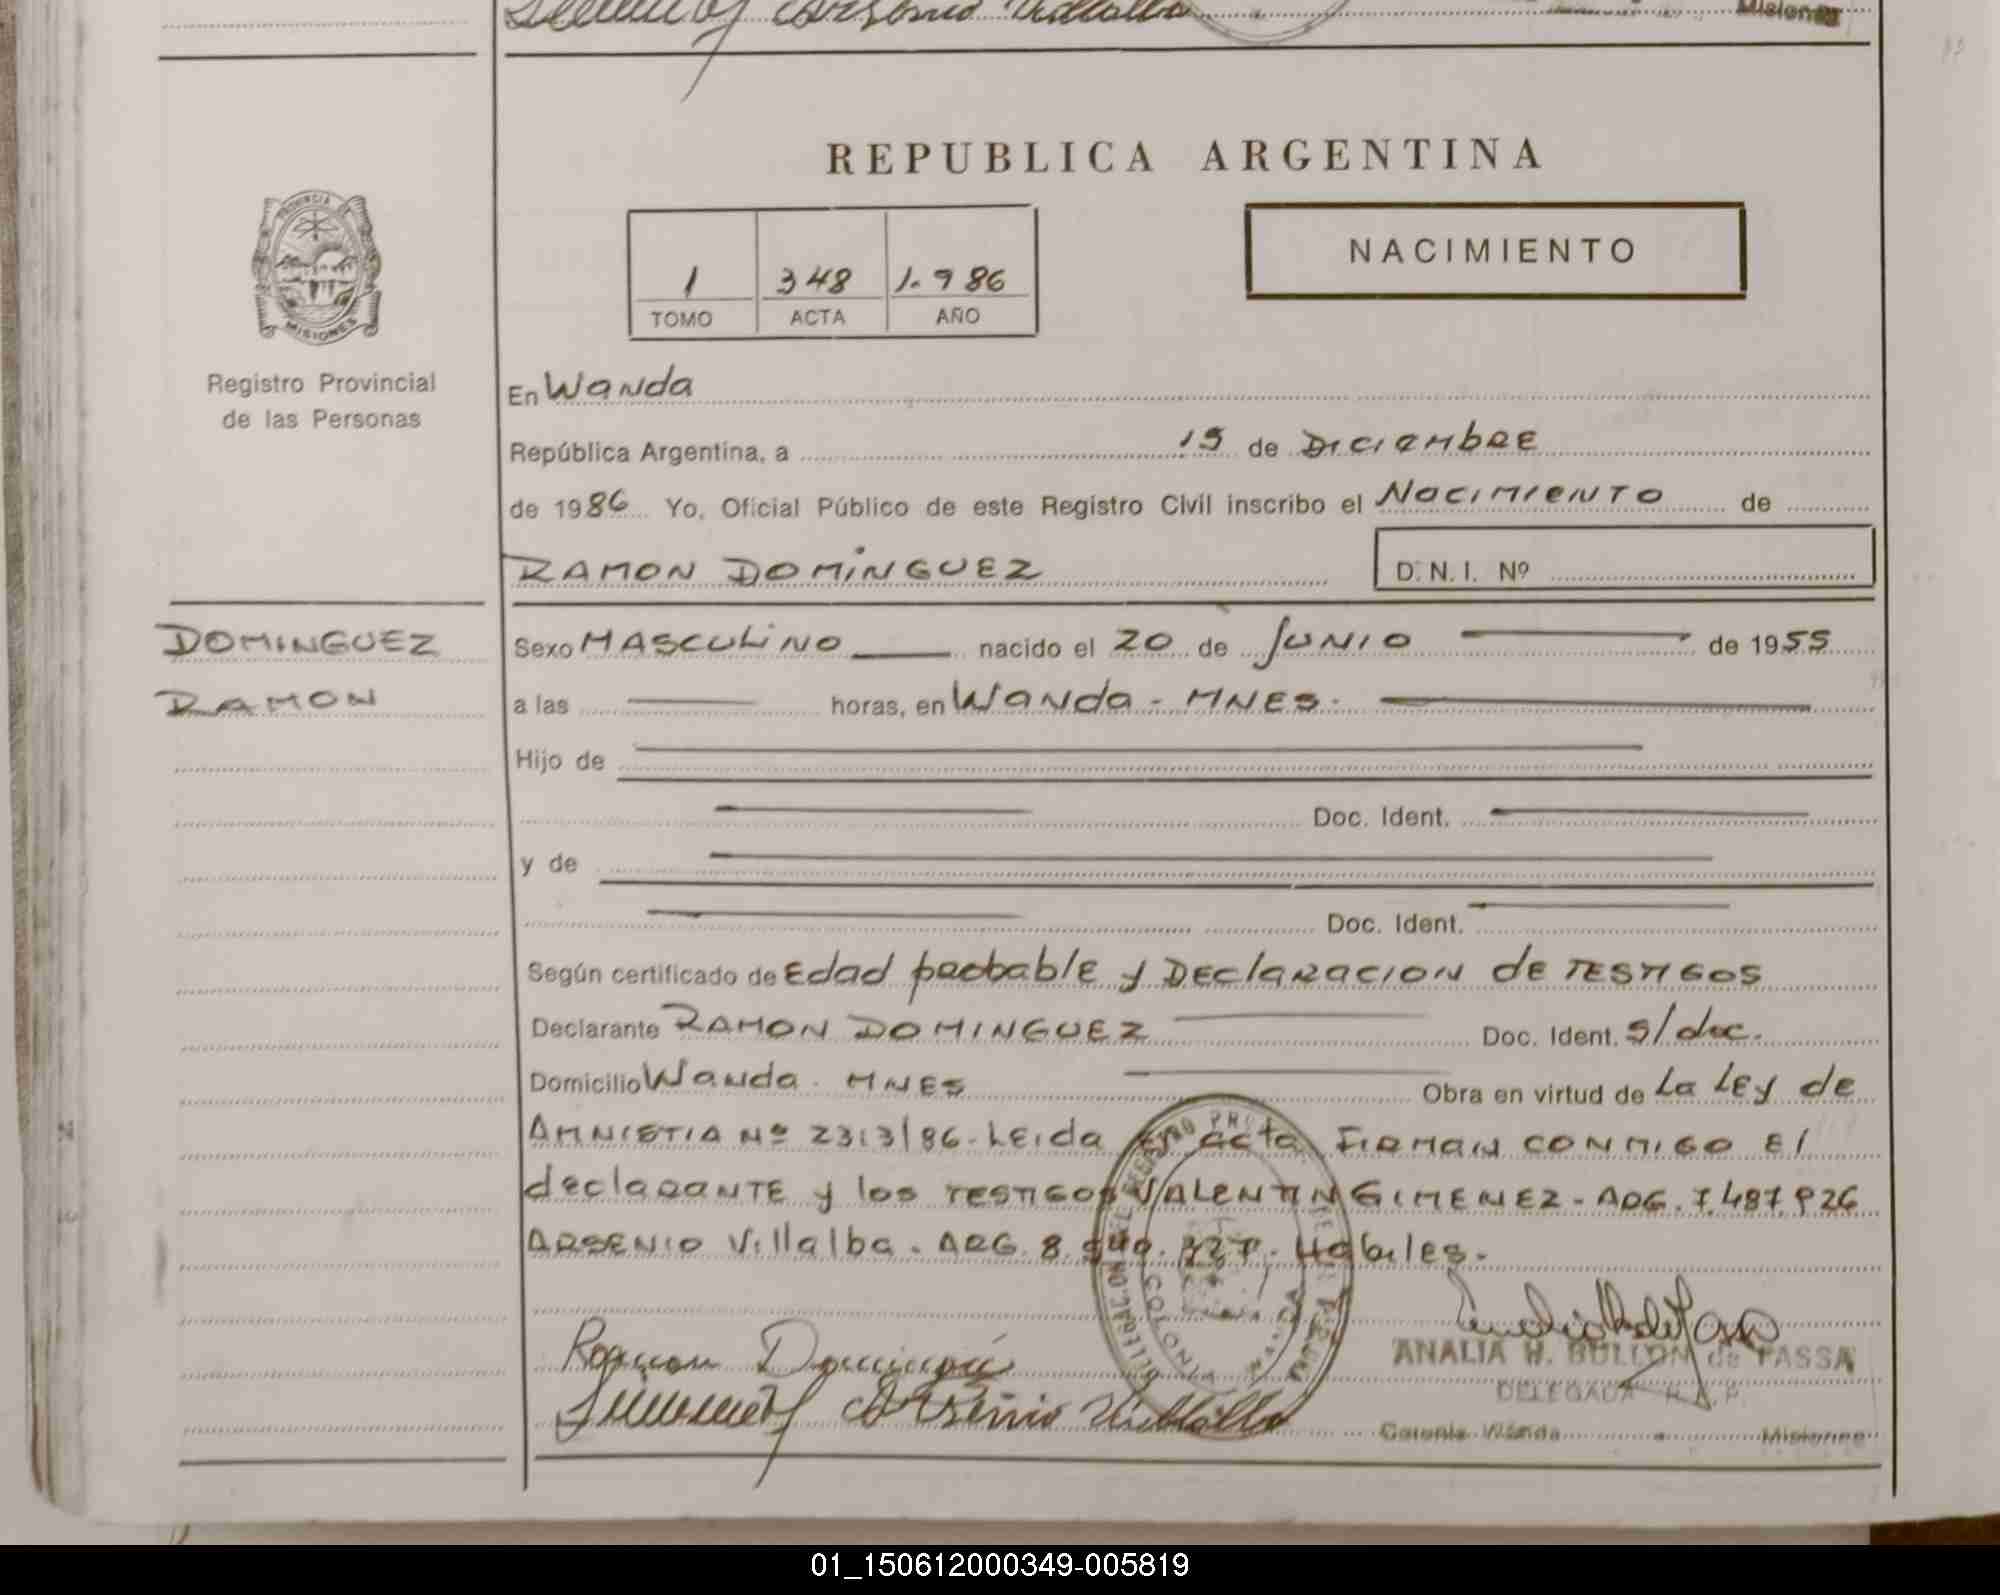 Arsenio Villalba
Misiones
REPUBLICA ARGENTINA
NACIMIENTO
1 348 1.986
TOMO ACTA AÑO
PROVINCIA DE
MISIONES
Registro Provincial
de las Personas
En Wanda
República Argentina, a 15 de Diciembre
de 1986 Yo, Oficial Público de este Registro Civil inscribo el Nacimiento de
RAMON DOMINGUEZ D.N.I. Nº
DOMINGUEZ
RAMON
Sexo MASCULINO nacido el 20 de JUNIO de 1955
a las horas, en Wanda - MNES.
Hijo de
Doc. Ident.
y de
Doc. Ident.
Según certificado de Edad probable y DECLARACION de TESTIGOS
Declarante RAMON DOMINGUEZ Doc. Ident. s/doc.
Domicilio Wanda. MNES Obra en virtud de La LEY de
AMNISTIA Nº 2313/86. Leida acta FIRMAN CONMIGO El
declaRANTE y los TESTIGOS VALENTIN GIMENEZ - ARG. 7.487.926
ARSENIO Villalba. ARG. 8. Habiles.
Ramon Dominguez
Gimenez Arsenio Villalba
ANALIA H. BULLON de FASSA
DELEGADA R.P.P.
Colonia Wanda Misiones
01_150612000349-005819